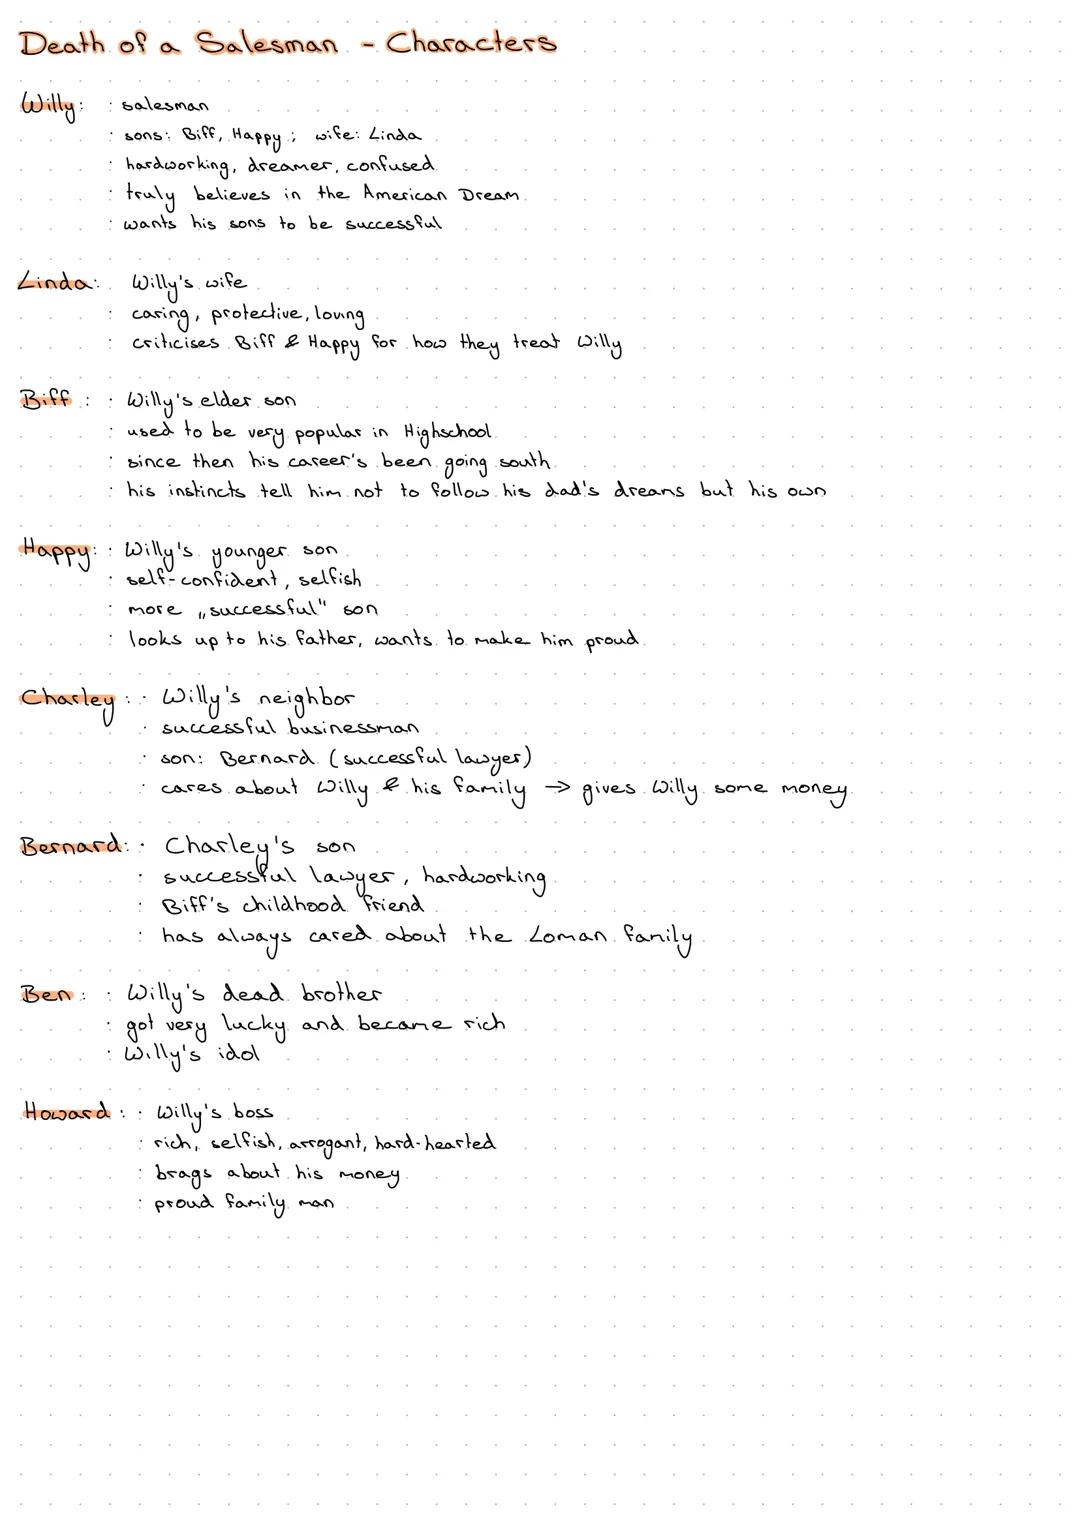 Death of a Salesman - Characters
Willy: · salesman
· sons: Biff, Happy; wife: Linda
· hardworking, dreamer, confused
· truly believes in the American Dream
· wants his sons to be successful
Linda: Willy's wife
· caring, protective, loving
· criticises Biff & Happy for how they treat Willy
Biff: · Willy's elder son
· used to be very popular in Highschool
· since then his career's been going south
· his instincts tell him not to follow his dad's dreams but his own
Happy: · Willy's younger son
· self-confident, selfish
· more „successful" son
· looks up to his father, wants to make him proud
Charley: · Willy's neighbor
· successful businessman
· son: Bernard (successful lawyer)
· cares about Willy & his family → gives Willy some money
Bernard: · Charley's son
· successful lawyer, hardworking
· Biff's childhood friend
· has always cared about the Loman family
Ben: · Willy's dead brother
· got very lucky and became rich
· Willy's idol
Howard: · Willy's boss
· rich, selfish, arrogant, hard-hearted
· brags about his money
· proud family man